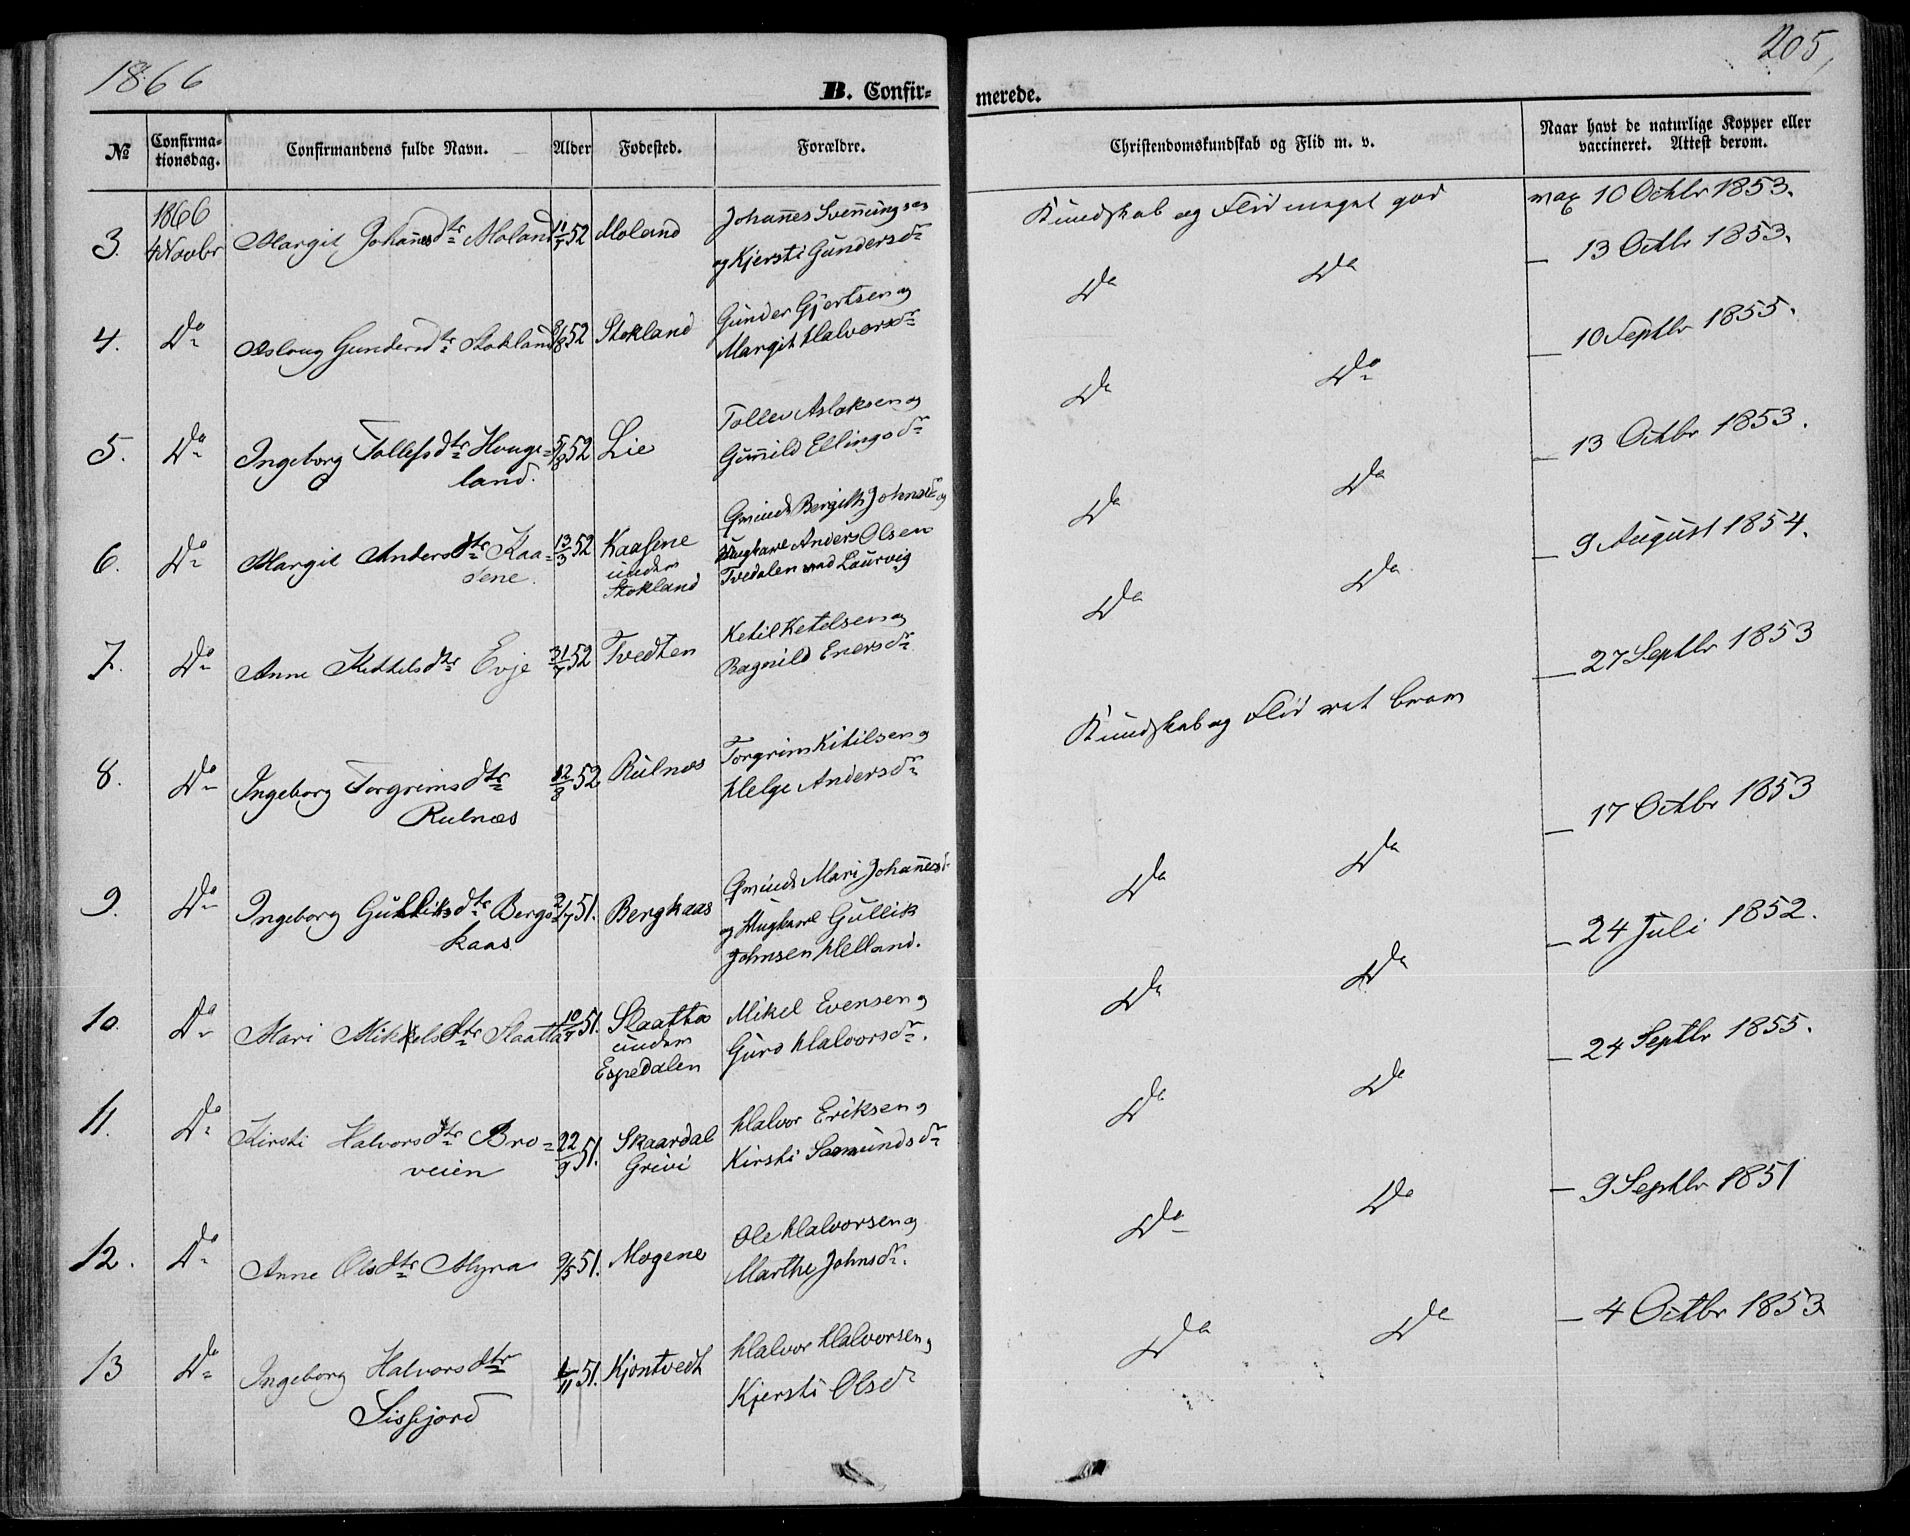 1866
205,
B. Confir-
merede.
No
Confirma-
tionsdag.
Confirmandens fulde Navn.
Alder
Fødested.
Forældre.
Christendomskundskab og Flid m. v.
Naar havt de naturlige Kopper eller
vaccineret. Attest derom.
3. 1866 4 Novbr Margit Johannesdtr Moland 11/7 52 Moland
Johannes Svenningsen
og Kjersti Gundersdr
Kundskab og Flid meget god
vax 10 Octbr 1853.
4. Do Asloug Gundersdtr Stokland 8/8 52 Stokland
Gunder Gjertsen og
Margit Halvorsdr
Do Do
13 Octbr 1853.
5. Do Ingeborg Tollefsdtr Houge-
land.
5/8 52 Lie
Tollev Aslaksen og
Gunnild Ellingsdr
Do Do
10 Septbr 1855.
6. Do Margit Andersdtr Kaa-
sene.
13/3 52 Kaasene
under
Stokland
Gminde Bergith Johnsdr og
Ungkarl Anders Olsen
Tvedalen ved Laurvig
Do Do
13 Octbr 1853.
7. Do Anne Kettelsdtr Evje 31/7 52 Tvedten
Ketil Ketelsen og
Ragnild Enersdr
Do Do
9 August 1854.
8. Do Ingeborg Torgrimsdtr
Rulnæs
12/8 52 Rulnæs
Torgrim Kitilsen og
Helge Andersdr
Kundskab og Flid ret brav
27 Septbr 1853
9. Do Ingeborg Gulliksdtr Bergs-
kaas
2/7 51. Bergkaas
Gminde Mari Johannesd
og Ungkarl Gullik
Johnsen Helland.
Do Do
17 Octbr 1853
10. Do Mari Mikkelsdtr Slaatta 10/7 51. Slaatta
under
Espedalen
Mikel Evensen og
Guro Halvorsdr.
Do Do
24 Juli 1852.
11. Do Kirsti Halvorsdtr Bro-
veien
22/9 51. Skaardal
Grivi
Halvor Eriksen og
Kirsti Samundsdr
Do Do
24 Septbr 1855.
12. Do Anne Olsdtr Myra 9/5 51. Mogene
Ole Halvorsen og
Marthe Johnsdr.
Do Do
9 Septbr 1851
13 Do Ingeborg Halvorsdtr
Sisjord
11 51. Kjøntvedt
Halvor Halvorsen og
Kjersti Olsdr
Do Do
4 Octbr 1853